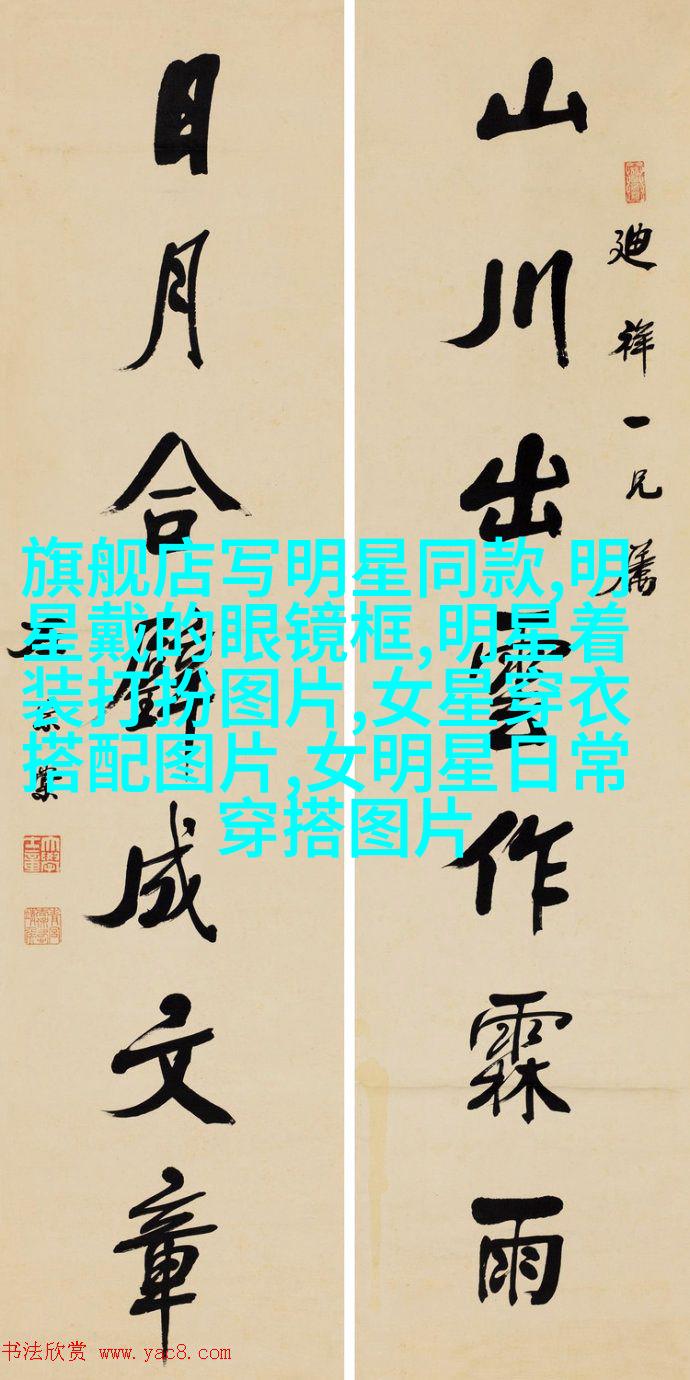 山川出雲作霖雨
廸祥一兄属
日月合璧成文章
旗舰店写明星同款,明
星戴的眼镜框,明星着
装打扮图片,女星穿衣
搭配图片,女明星日常
穿搭图片
书法欣赏 www.yac8.com